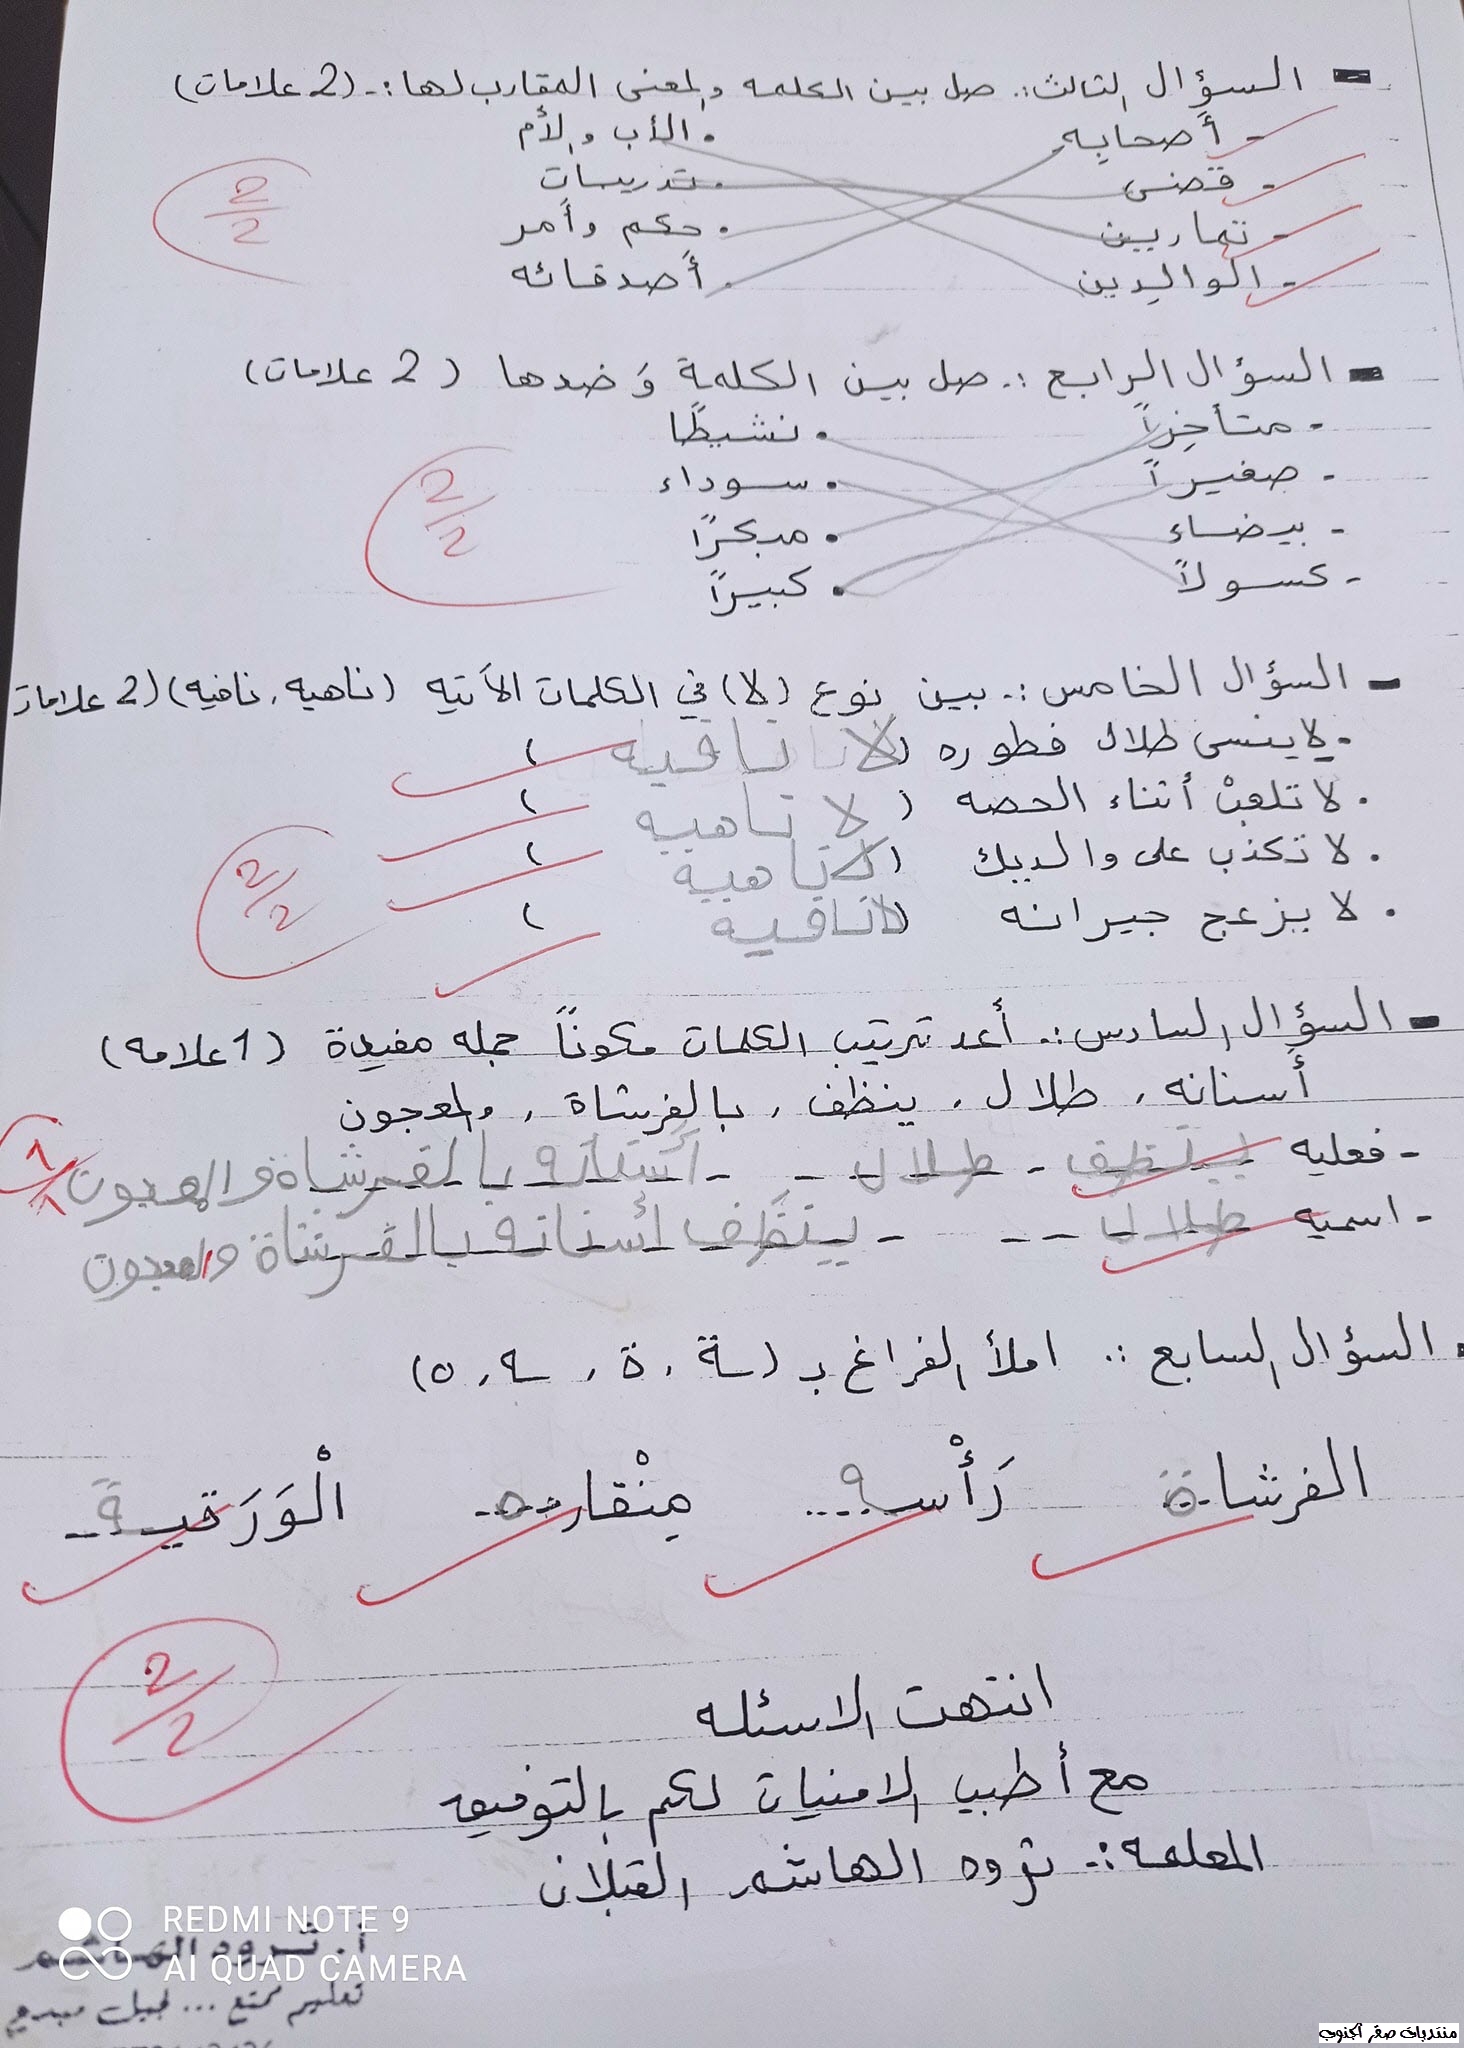 السؤال الثالث:. صل بين الكلمه والمعنى المقارب لها:. (2 علامات)
- أصحابه . الأب والأم
- قضى . تدريبات
- تمارين . حكم وأمر
- الوالدين . أصدقائه
السؤال الرابع:. صل بين الكلمة وضدها (2 علامات)
- متأخراً . نشيطًا
- صغيراً . سوداء
- بيضاء . مبكرًا
- كسولاً . كبيرًا
السؤال الخامس:. بين نوع (لا) في الكلمات الآتيه (ناهيه، نافيه) (2 علامات
. لا ينسى طلال فطوره (لا نافيه )
. لا تلعبْ أثناء الحصه ( لا ناهيه )
. لا تكذب على والديك (لا ناهيه )
. لا يزعج جيرانه (لا نافيه )
السؤال السادس:. أعد ترتيب الكلمات مكوناً جمله مفيدة (1 علامه)
أسنانه، طلال، ينظف، بالفرشاة، والمعجون
- فعليه ينظف طلال أسنانه بالفرشاة والمعجون
- اسميه طلال ينظف أسنانه بالفرشاة والمعجون
السؤال السابع:. املأ الفراغ بـ (ـة، ة، ـه، ه)
الفرشاة رَأْسـه مِنْقاره الْوَرَقيـة
انتهت الاسئله
مع أطيب الامنيات لكم بالتوفيق
المعلمه:. ثروه الهاشم القبلان
2/2
2/2
2/2
1/1
2/2
REDMI NOTE 9
AI QUAD CAMERA
أ. ثروه الهاشم
تعليم ممتع ... لجيل مبدع
منتديات صقر الجنوب